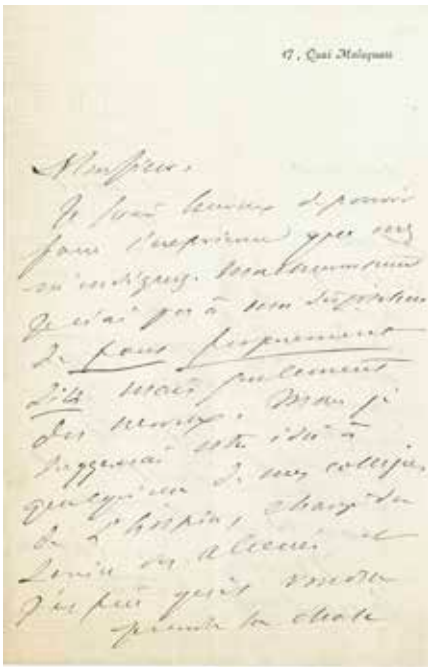 17, Quai Malaquais
Monsieur,
Je serais heureux de pouvoir
faire l'expérience que vous
m'indiquez. Malheureusement
je n'ai pas à ma disposition
de fous proprement
dits mais seulement
des nerveux. Mais je
suggererai votre idée à
quelqu'un de mes collègues
de l'hospice, chargé du
service des aliénés et
j'espère qu'il voudra
prendre la chose